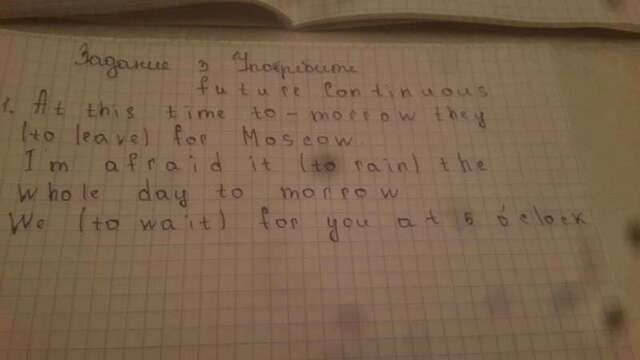 Задание 3 Употребите
future Continuous
1. At this time to-morrow they
(to leave) for Moscow.
I'm afraid it (to rain) the
whole day to morrow
We (to wait) for you at 6 o'clock